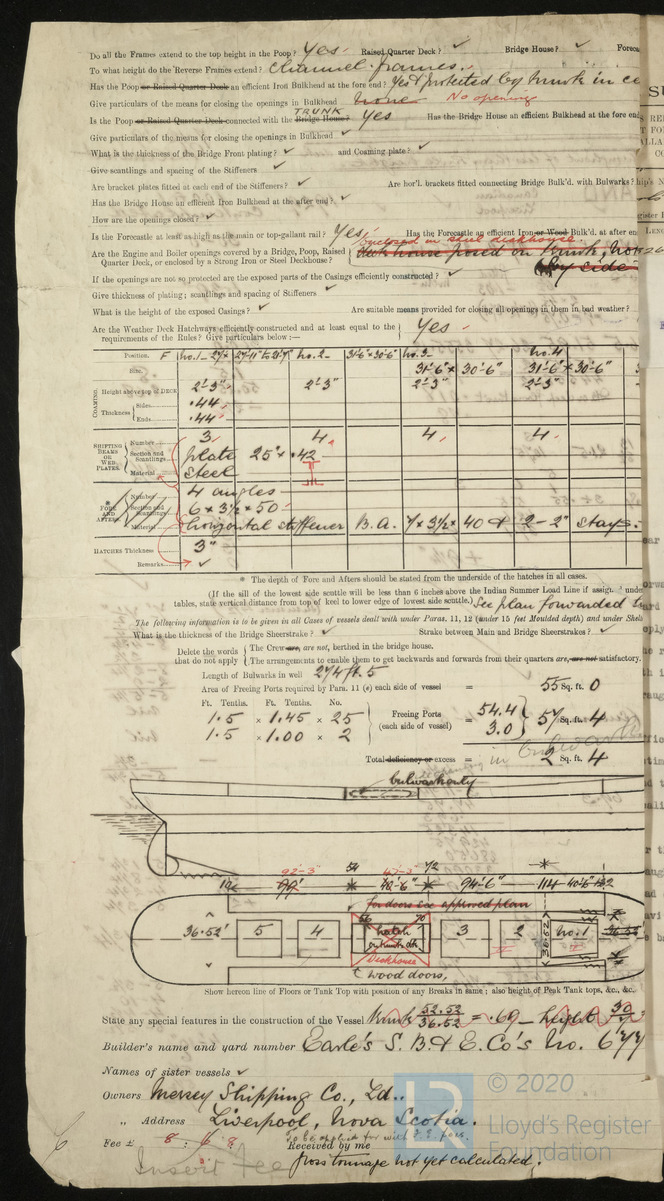 Do all the Frames extend to the top height in the Poop? Yes. Raised Quarter Deck? ✓ Bridge House? ✓ Foreca
To what height do the Reverse Frames extend? Channel frames.
Has the Poop or Raised Quarter Deck an efficient Iron Bulkhead at the fore end? Yes & protected by trunk in ce
Give particulars of the means for closing the openings in Bulkhead none No opening
TRUNK
Is the Poop or Raised Quarter Deck connected with the Bridge House? Yes Has the Bridge House an efficient Bulkhead at the fore end
Give particulars of the means for closing the openings in Bulkhead ✓
What is the thickness of the Bridge Front plating? ✓ and Coaming plate? ✓
Give scantlings and spacing of the Stiffeners ✓
Are bracket plates fitted at each end of the Stiffeners? ✓ Are hor'l. brackets fitted connecting Bridge Bulk'd. with Bulwarks?
Has the Bridge House an efficient Iron Bulkhead at the after end? ✓
How are the openings closed? ✓
Is the Forecastle at least as high as the main or top-gallant rail? Yes, Has the Forecastle an efficient Iron or Wood Bulk'd. at after en
enclosed in steel deckhouse.
Are the Engine and Boiler openings covered by a Bridge, Poop, Raised deck house placed on trunk, not
Quarter Deck, or enclosed by a Strong Iron or Steel Deckhouse? by side
If the openings are not so protected are the exposed parts of the Casings efficiently constructed? ✓
Give thickness of plating; scantlings and spacing of Stiffeners ✓
What is the height of the exposed Casings? ✓ Are suitable means provided for closing all openings in them in bad weather? ✓
Are the Weather Deck Hatchways efficiently constructed and at least equal to the
requirements of the Rules? Give particulars below:— Yes
Position. F no.1 - 27' x 27'11" to 21'7" no. 2- 31'-6" x 30'-6" no. 3- no. 4
Size. 31'-6" x 30'-6" 31'-6" x 30'-6"
COAMING Height above top of DECK 2'-3" 2'-3" 2'-3" 2'-3"
Thickness Sides .44
Ends .44
SHIPPING BEAMS OR WEB PLATES. Number 3 4 4 4
Section and Scantlings plate 25" x .42
Material steel
FORE AND AFTERS. Number 4 angles
Section and Scantlings 6 x 3½ x 50
Material horizontal stiffener B.A. 7 x 3½ x 40 & 2 - 2" stays.
HATCHES Thickness 3"
Remarks ✓
* The depth of Fore and Afters should be stated from the underside of the hatches in all cases.
(If the sill of the lowest side scuttle will be less than 6 inches above the Indian Summer Load Line if assign unde
tables, state vertical distance from top of keel to lower edge of lowest side scuttle.) See plan forwarded
The following information is to be given in all Cases of vessels dealt with under Paras. 11, 12 (under 15 feet Moulded depth) and under Shel
What is the thickness of the Bridge Sheerstrake? ✓ Strake between Main and Bridge Sheerstrakes? ✓
Delete the words The Crew are, are not, berthed in the bridge house.
that do not apply The arrangements to enable them to get backwards and forwards from their quarters are, are not satisfactory.
Length of Bulwarks in well 274 ft. 5
Area of Freeing Ports required by Para. 11 (e) each side of vessel = 55 Sq. ft. 0
Ft. Tenths. Ft. Tenths. No.
1.5 x 1.45 x 25 Freeing Ports = 54.4
1.5 x 1.00 x 2 (each side of vessel) 3.0 57 Sq. ft. 4
in bulwark
Total deficiency or excess = 2 Sq. ft. 4
bulwark only
92'-3" 54 72
19 99' 48'-6" 94'-6" 114 40'-6"
for doors see approved plan
56 70
36.52' 5 4 hatch on trunk dk 3 2 36.52 no. 1 36.52'
Deckhouse
wood doors,
Show hereon line of Floors or Tank Top with position of any Breaks in same; also height of Peak Tank tops, &c., &c.
State any special features in the construction of the Vessel trunk 52.52/36.52 = .69 - height 30
Builder's name and yard number Earle's S. B. & E. Co's No. 677
Names of sister vessels ✓
Owners Mersey Shipping Co., Ld..
„ Address Liverpool, Nova Scotia.
Fee £ 8 : 6 : 8 To be applied for with F.E. fees.
Received by me
Insert fee gross tonnage not yet calculated.
© 2020
Lloyd's Register
Foundation